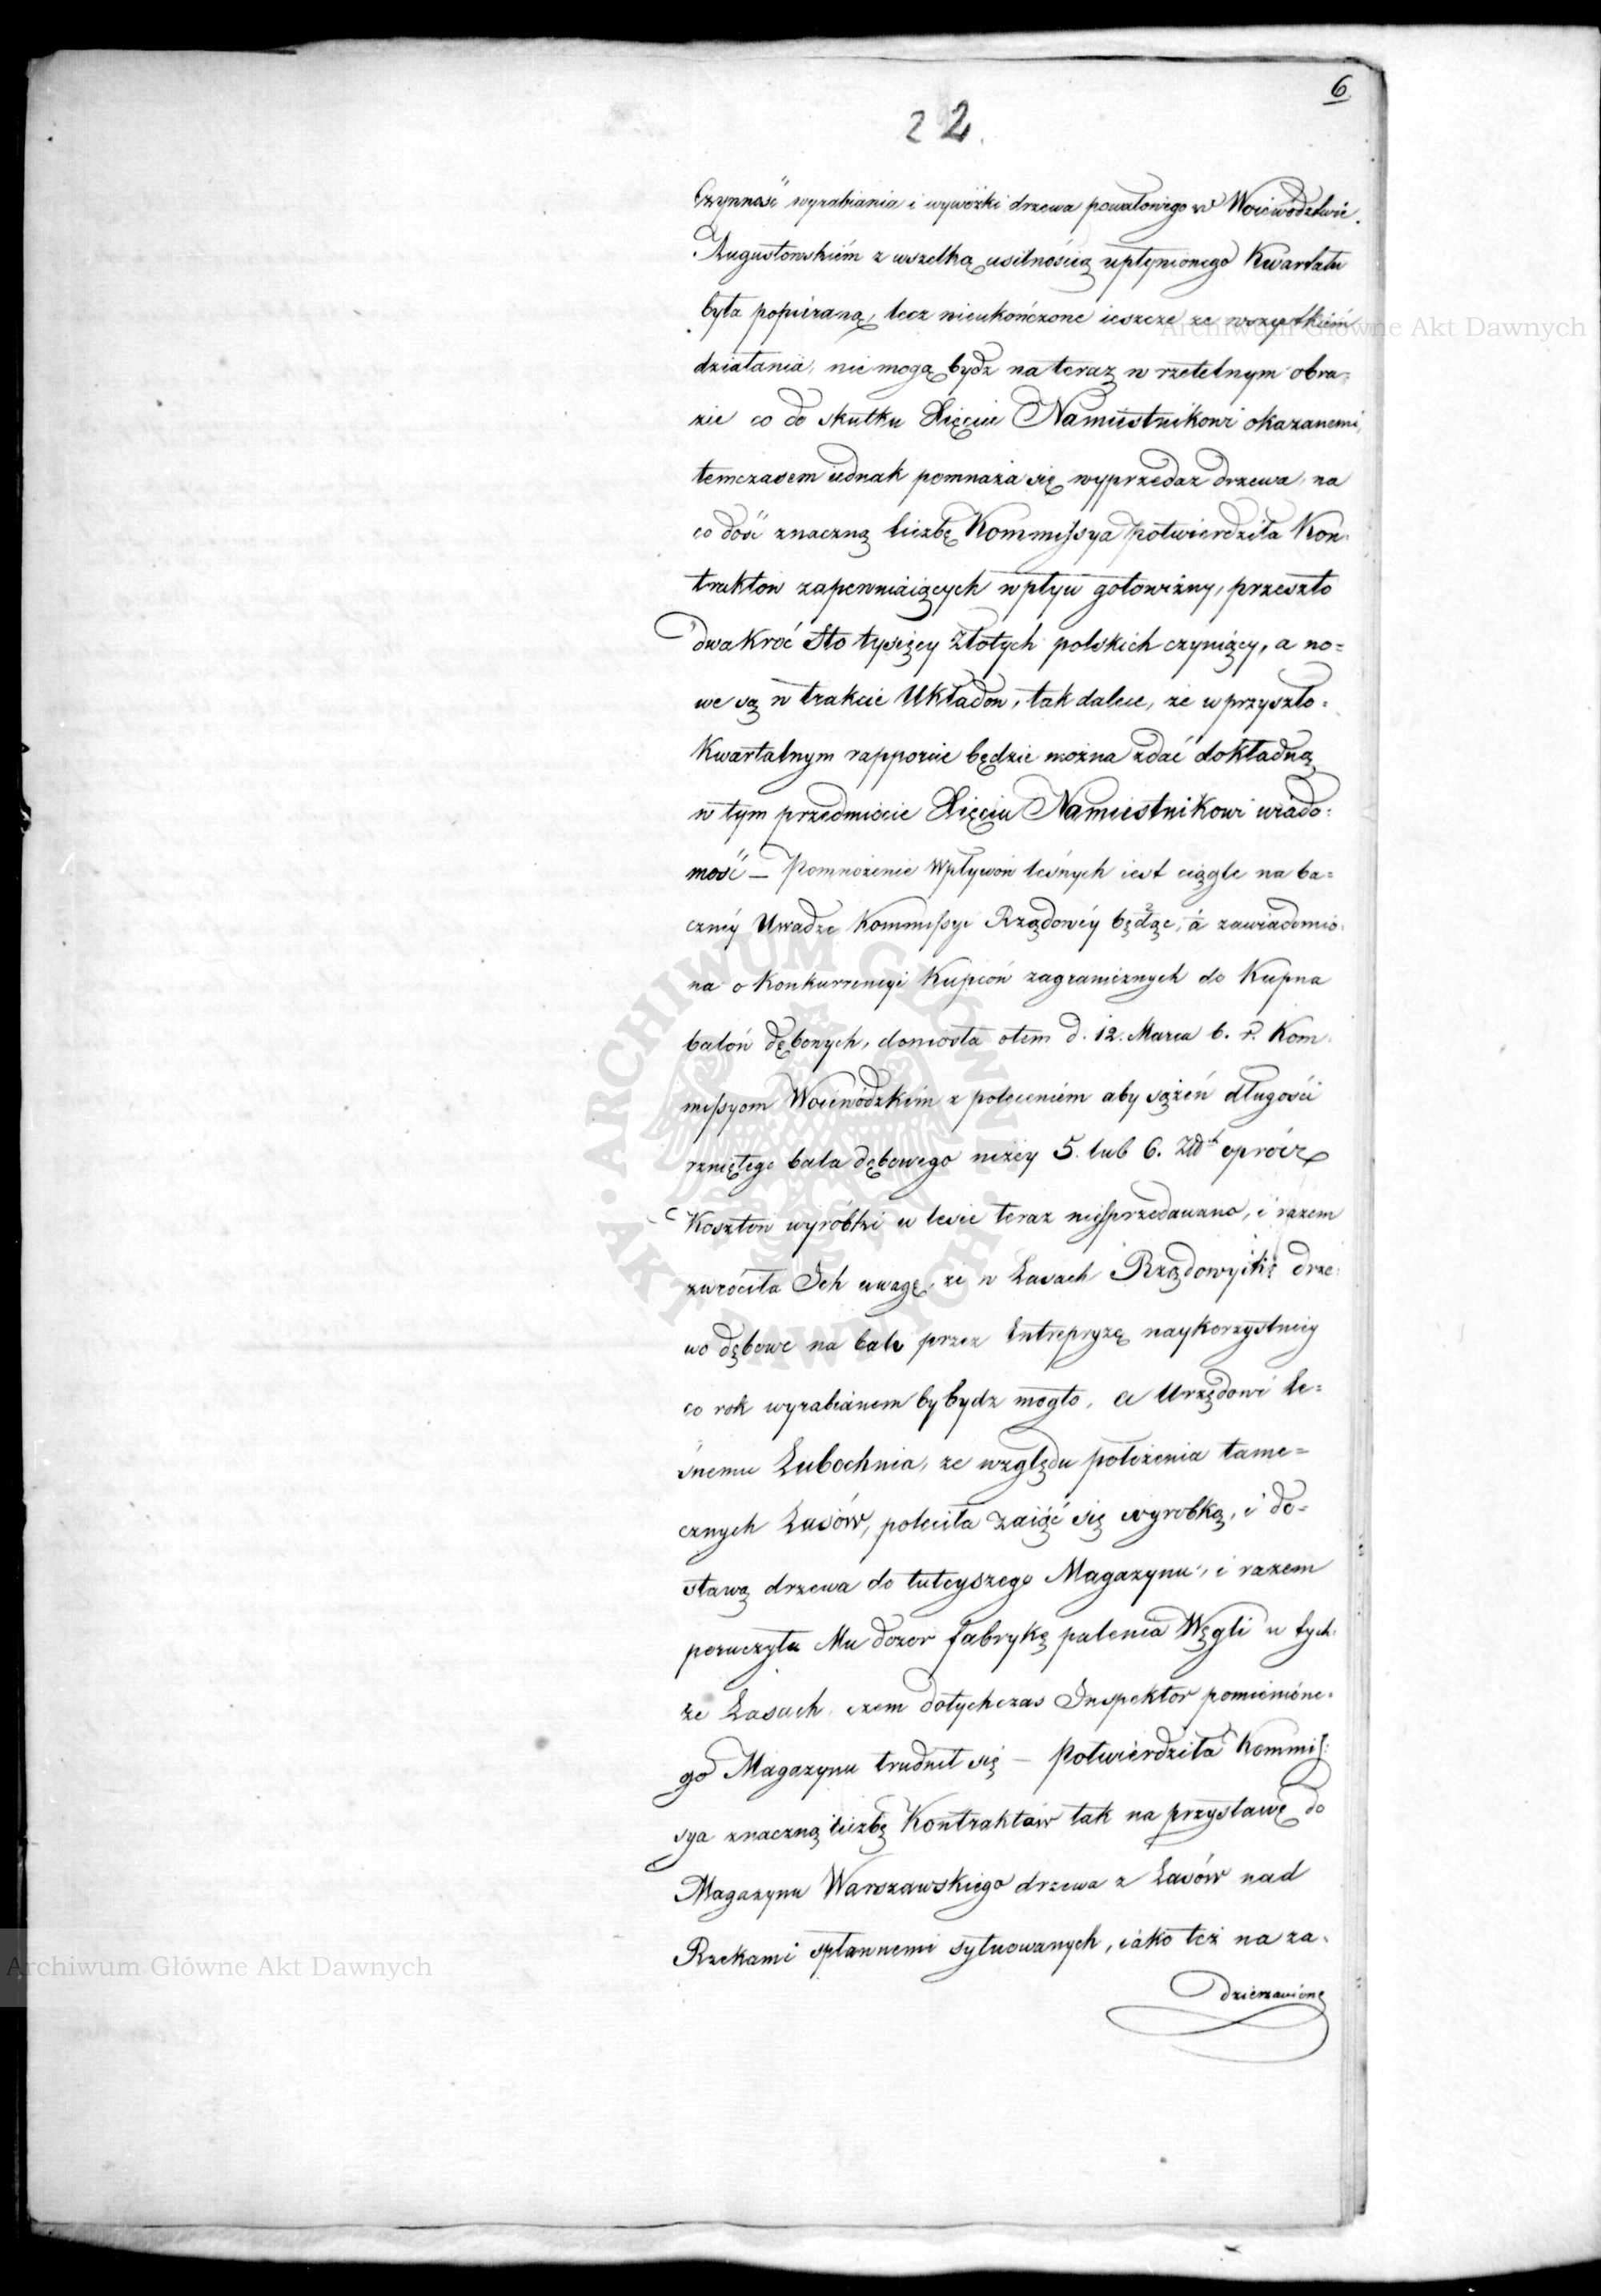 6
22.
Czynność wyrabiania i wywózki drzewa powalonego w Woiewództwie
Augustowskiém z wszelką usilnością upłynionego Kwartału
była popiéraną, lecz nieukończone ieszcze ze wszystkiém
działania, nie mogą bydź na teraz w rzetelnym obra=
zie co do skutku Xięciu Namiestnikowi okazanemi,
temczasem iednak pomnaża się wyprzedaż drzewa, na
co dość znaczną liczbę Kommissya potwierdziła Kon=
traktów zapewniaiących wpływ gotowizny, przeszło
dwakroć Sto tysięcy Złotych polskich czyniący, a no=
we są w trakcie Układów, tak dalece, że w przyszło=
Kwartalnym rapporcie będzie można zdać dokładną
w tym przedmiocie Xięciu Namiestnikowi wiado=
mość — Pomnożenie Wpływów leśnych iest ciągle na ba=
cznéy Uwadze Kommissyi Rządowéy będąc, á zawiadomio=
na o Konkurrencyi Kupców zagranicznych do Kupna
balów dębowych, doniosła o tem d. 12. Marca b. r. Kom=
missyom Woiewódzkim z poleceniém aby sążeń długości
rzniętego bala dębowego niżéy 5. lub 6. Złł oprócz
Kosztów wyróbki w lesie teraz niesprzedawano, i razem
zwróciła Ich uwagę, że w Lasach Rządowych drze=
wo dębowe na bale przez Entrepryzę naykorzystniéy
co rok wyrabianem by bydź mogło, a Urzędowi Le=
śnemu Lubochnia, ze względu położenia tame=
cznych Lasów, poleciła zaiąć się wyrobką, i do=
stawą drzewa do tuteyszego Magazynu, i razem
poruczyła Mu dozor fabrykę palenia Węgli w tych=
że Lasach, czem dotychczas Inspektor pomienione=
go Magazynu trudnił się — Potwierdziła Kommis=
sya znaczną liczbę Kontraktów tak na przystawę do
Magazynu Warszawskiego drzewa z Lasów nad
Rzekami spławnemi sytuowanych, iáko też na za=
dzierzawionę
Archiwum Główne Akt Dawnych
Archiwum Główne Akt Dawnych
ARCHIWUM GŁÓWNE AKT DAWNYCH